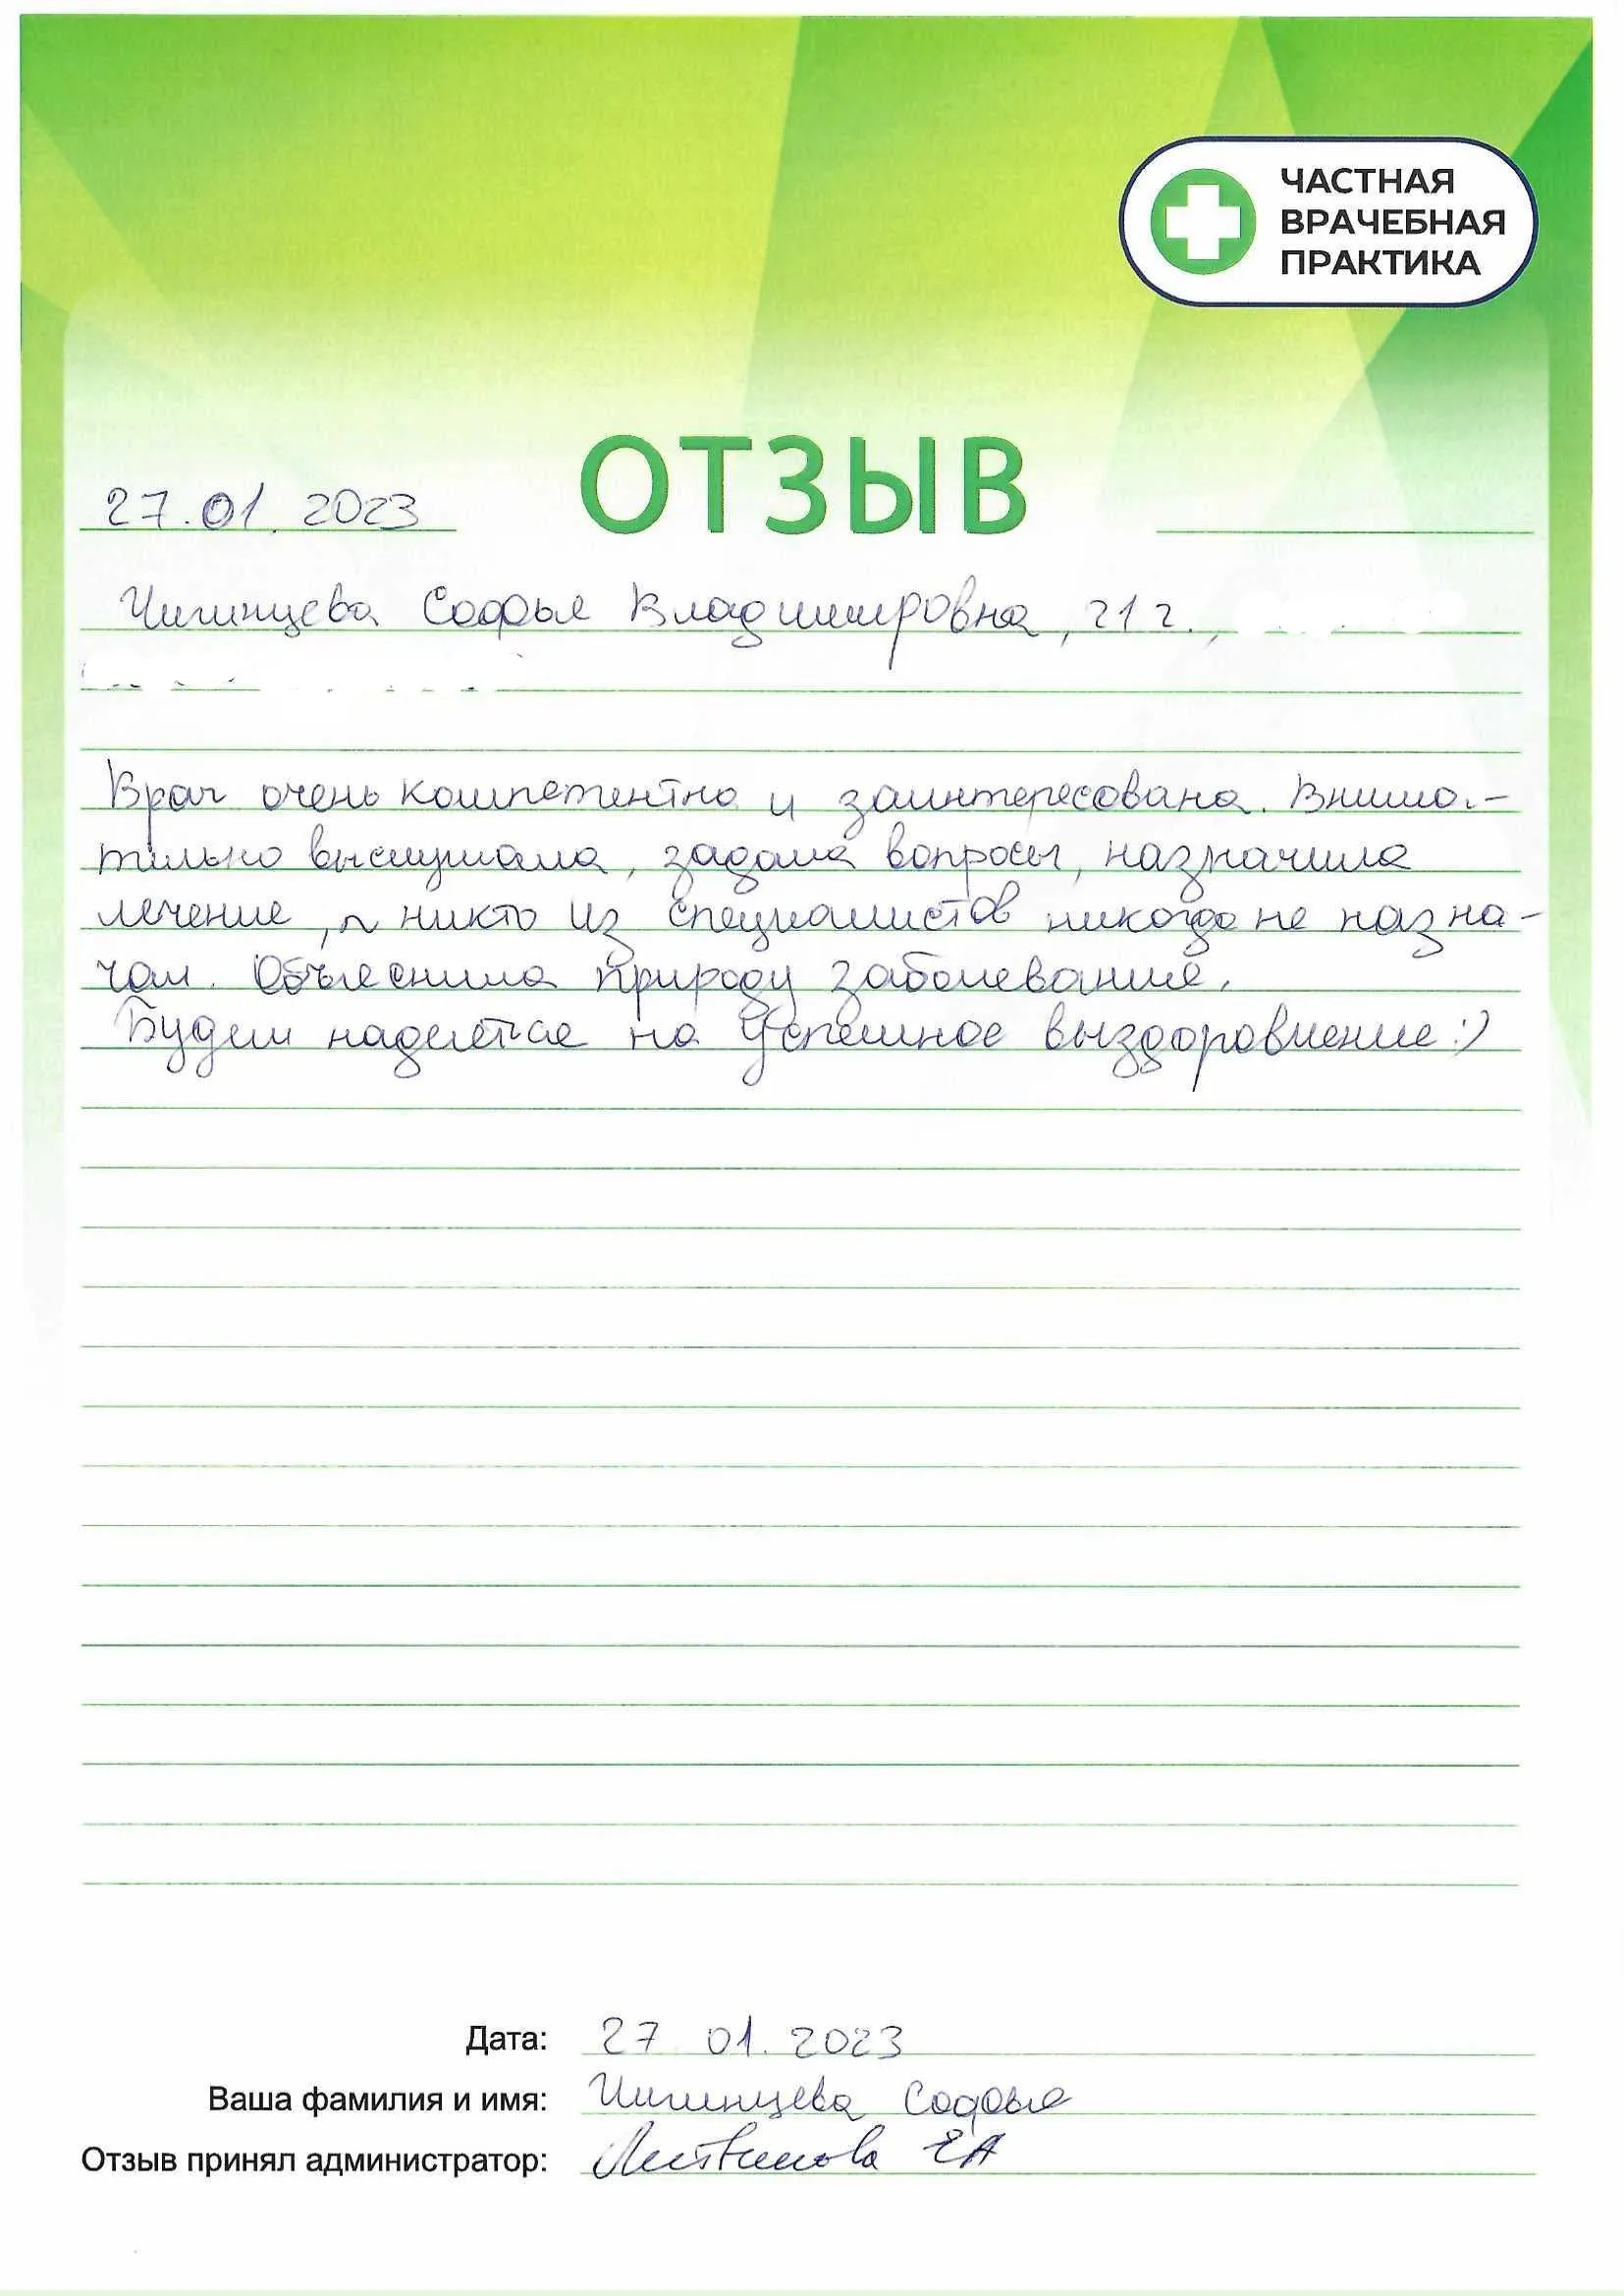 ЧАСТНАЯ
ВРАЧЕБНАЯ
ПРАКТИКА
ОТЗЫВ
27.01.2023
Софья Владимировна, 21 г.,
Врач очень компетентна и заинтересована. Внима-
тельно выслушала, задала вопросы, назначила
лечение, никто из специалистов никогда не назна-
чал. Объяснила природу заболевания.
Будем надеяться на успешное выздоровление :)
Дата: 27.01.2023
Ваша фамилия и имя: Софья
Отзыв принял администратор: Литвинова ЕА